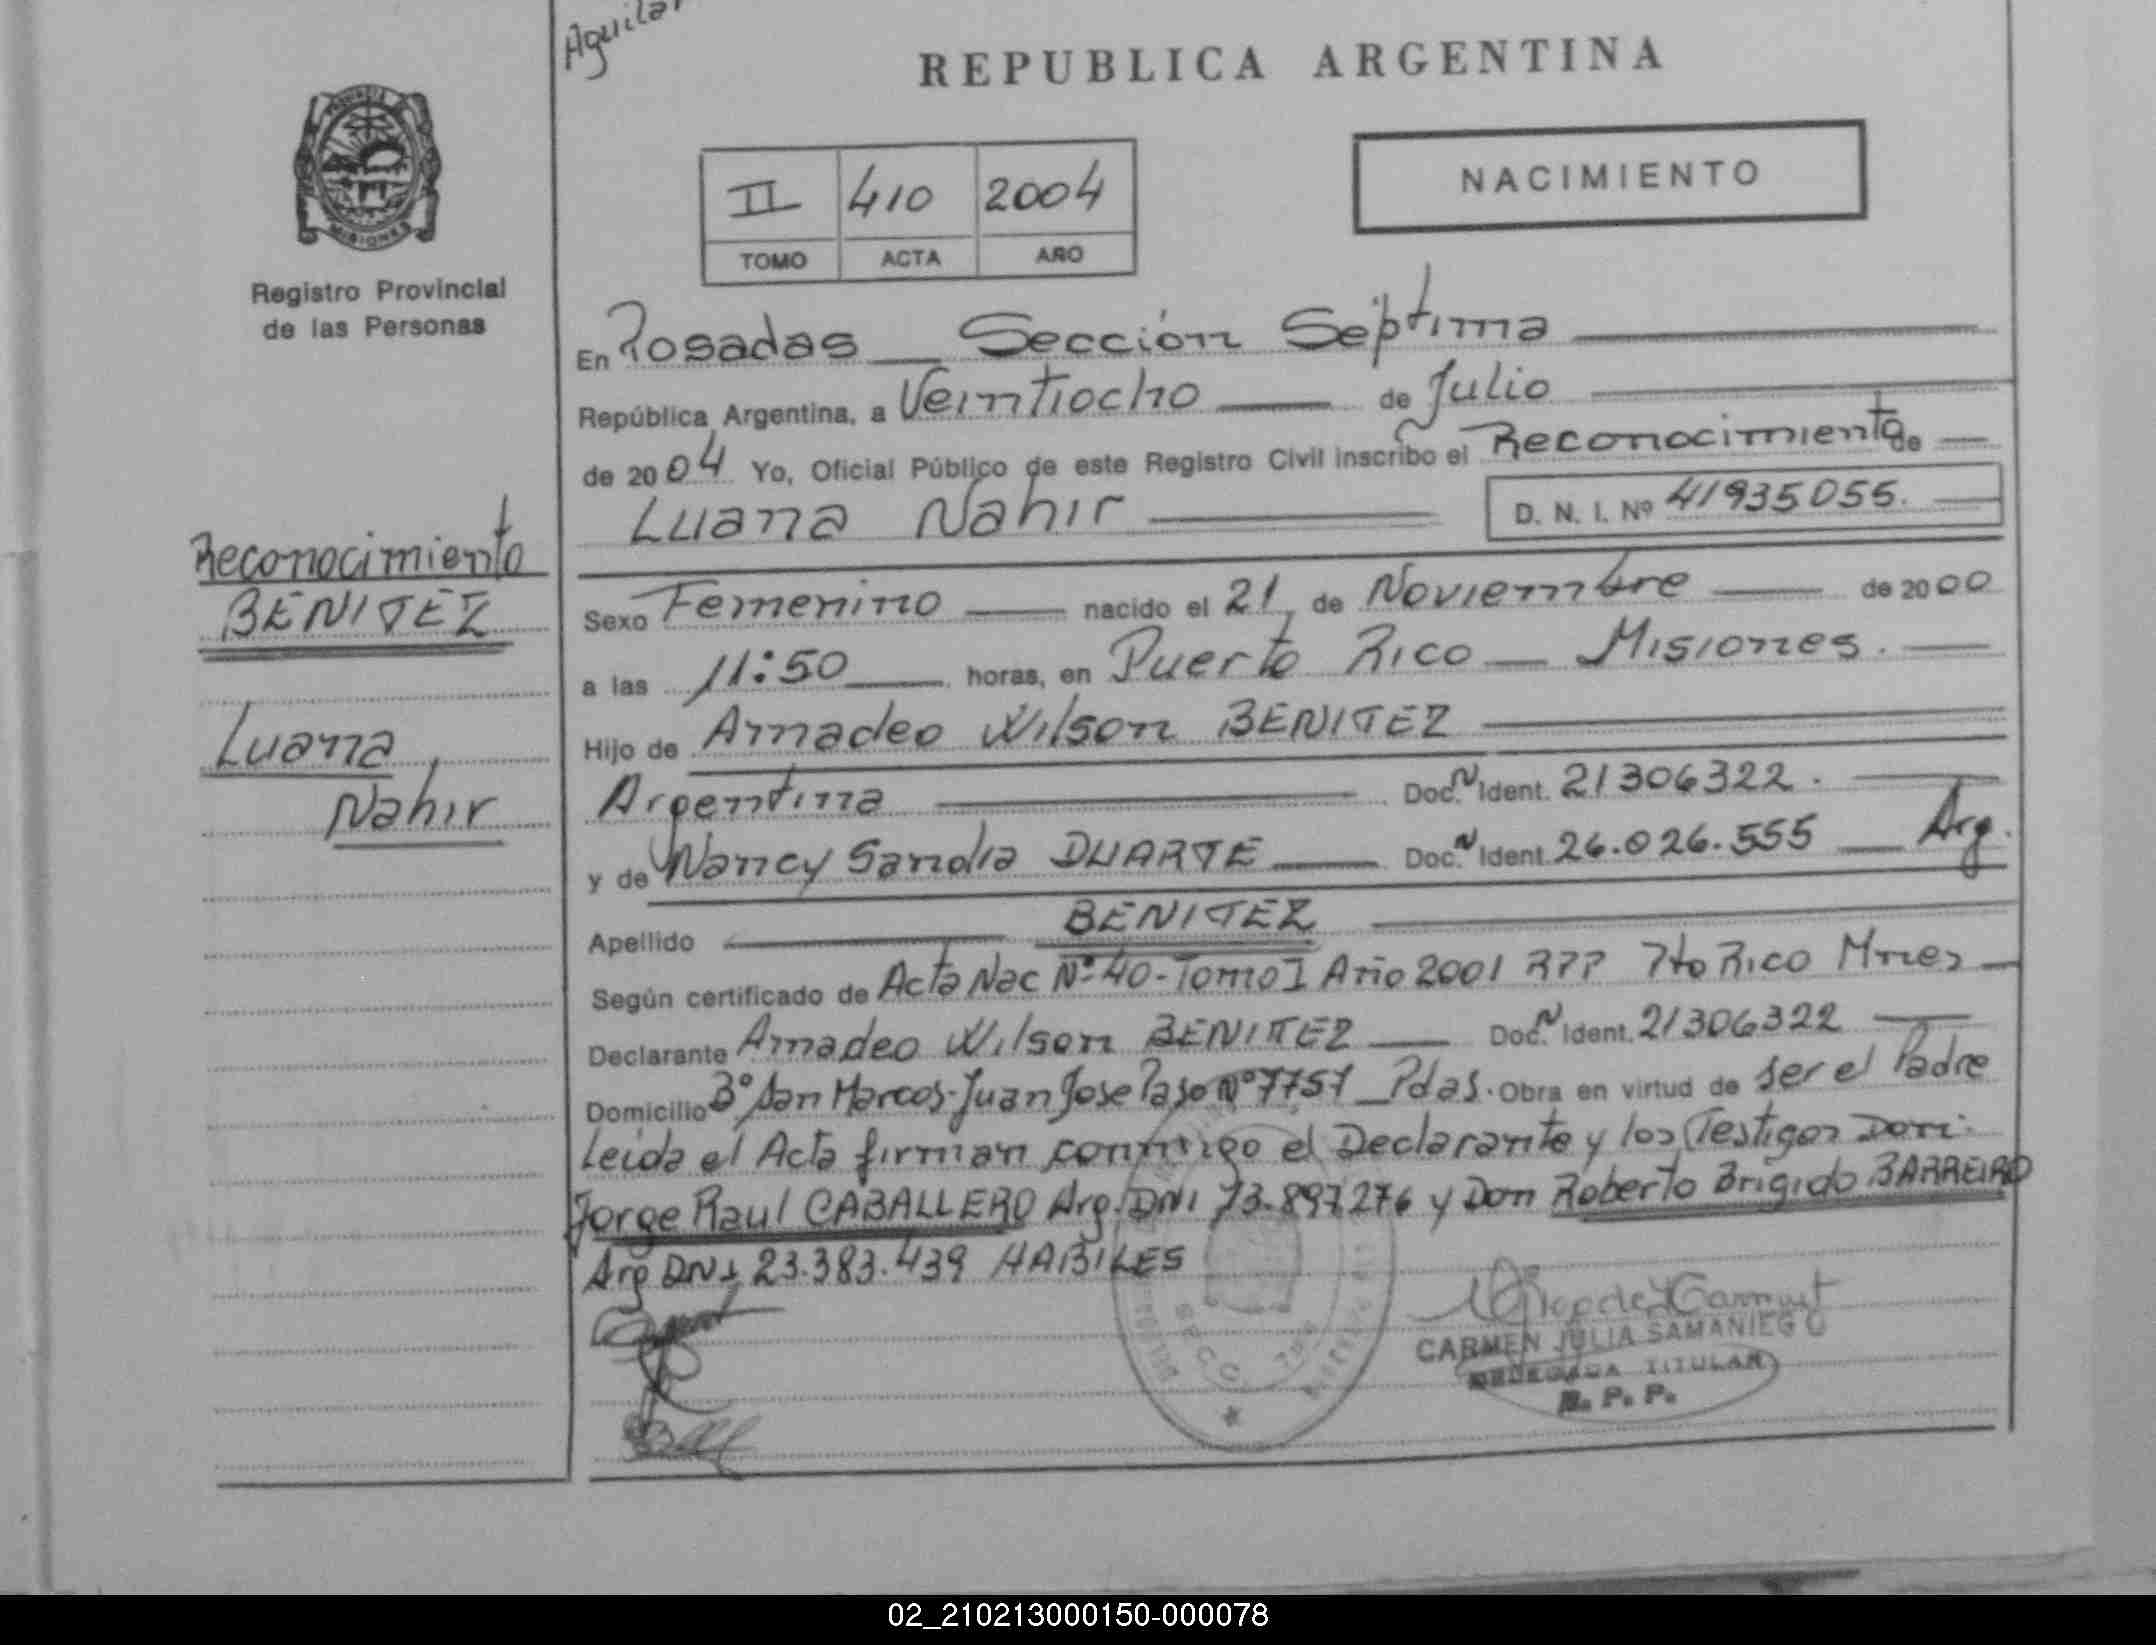 Aguilar
REPUBLICA ARGENTINA
MISIONES
Registro Provincial
de las Personas
II 410 2004
TOMO ACTA AÑO
NACIMIENTO
En Posadas Sección Septima
República Argentina, a Veintiocho de Julio
de 2004 Yo, Oficial Público de este Registro Civil inscribo el Reconocimiento de
Luana Nahir D. N. I. Nº 41935055.
Reconocimiento
BENITEZ
Luana
Nahir
Sexo Femenino nacido el 21 de Noviembre de 2000
a las 11:50 horas, en Puerto Rico Misiones.
Hijo de Amadeo Wilson BENITEZ
Argentina Doc. N Ident. 21306322.
y de Nancy Sandra DUARTE Doc. N Ident. 26.026.555 Arg.
Apellido BENITEZ
Según certificado de Acta Nac Nº 40 - Tomo I Año 2001 RPP Pto Rico Mnes
Declarante Amadeo Wilson BENITEZ Doc. N Ident. 21306322
Domicilio Bº San Marcos - Juan Jose Paso Nº 7757 Pdas. Obra en virtud de ser el Padre
Leida el Acta firman conmigo el Declarante y los Testigos Don:
Jorge Raul CABALLERO Arg. DNI 13.897276 y Don Roberto Brigido BARREIRO
Arg DNI 23.383.439 HABILES
CARMEN JULIA SAMANIEGO
DELEGADA TITULAR
R. P. P.
02_210213000150-000078